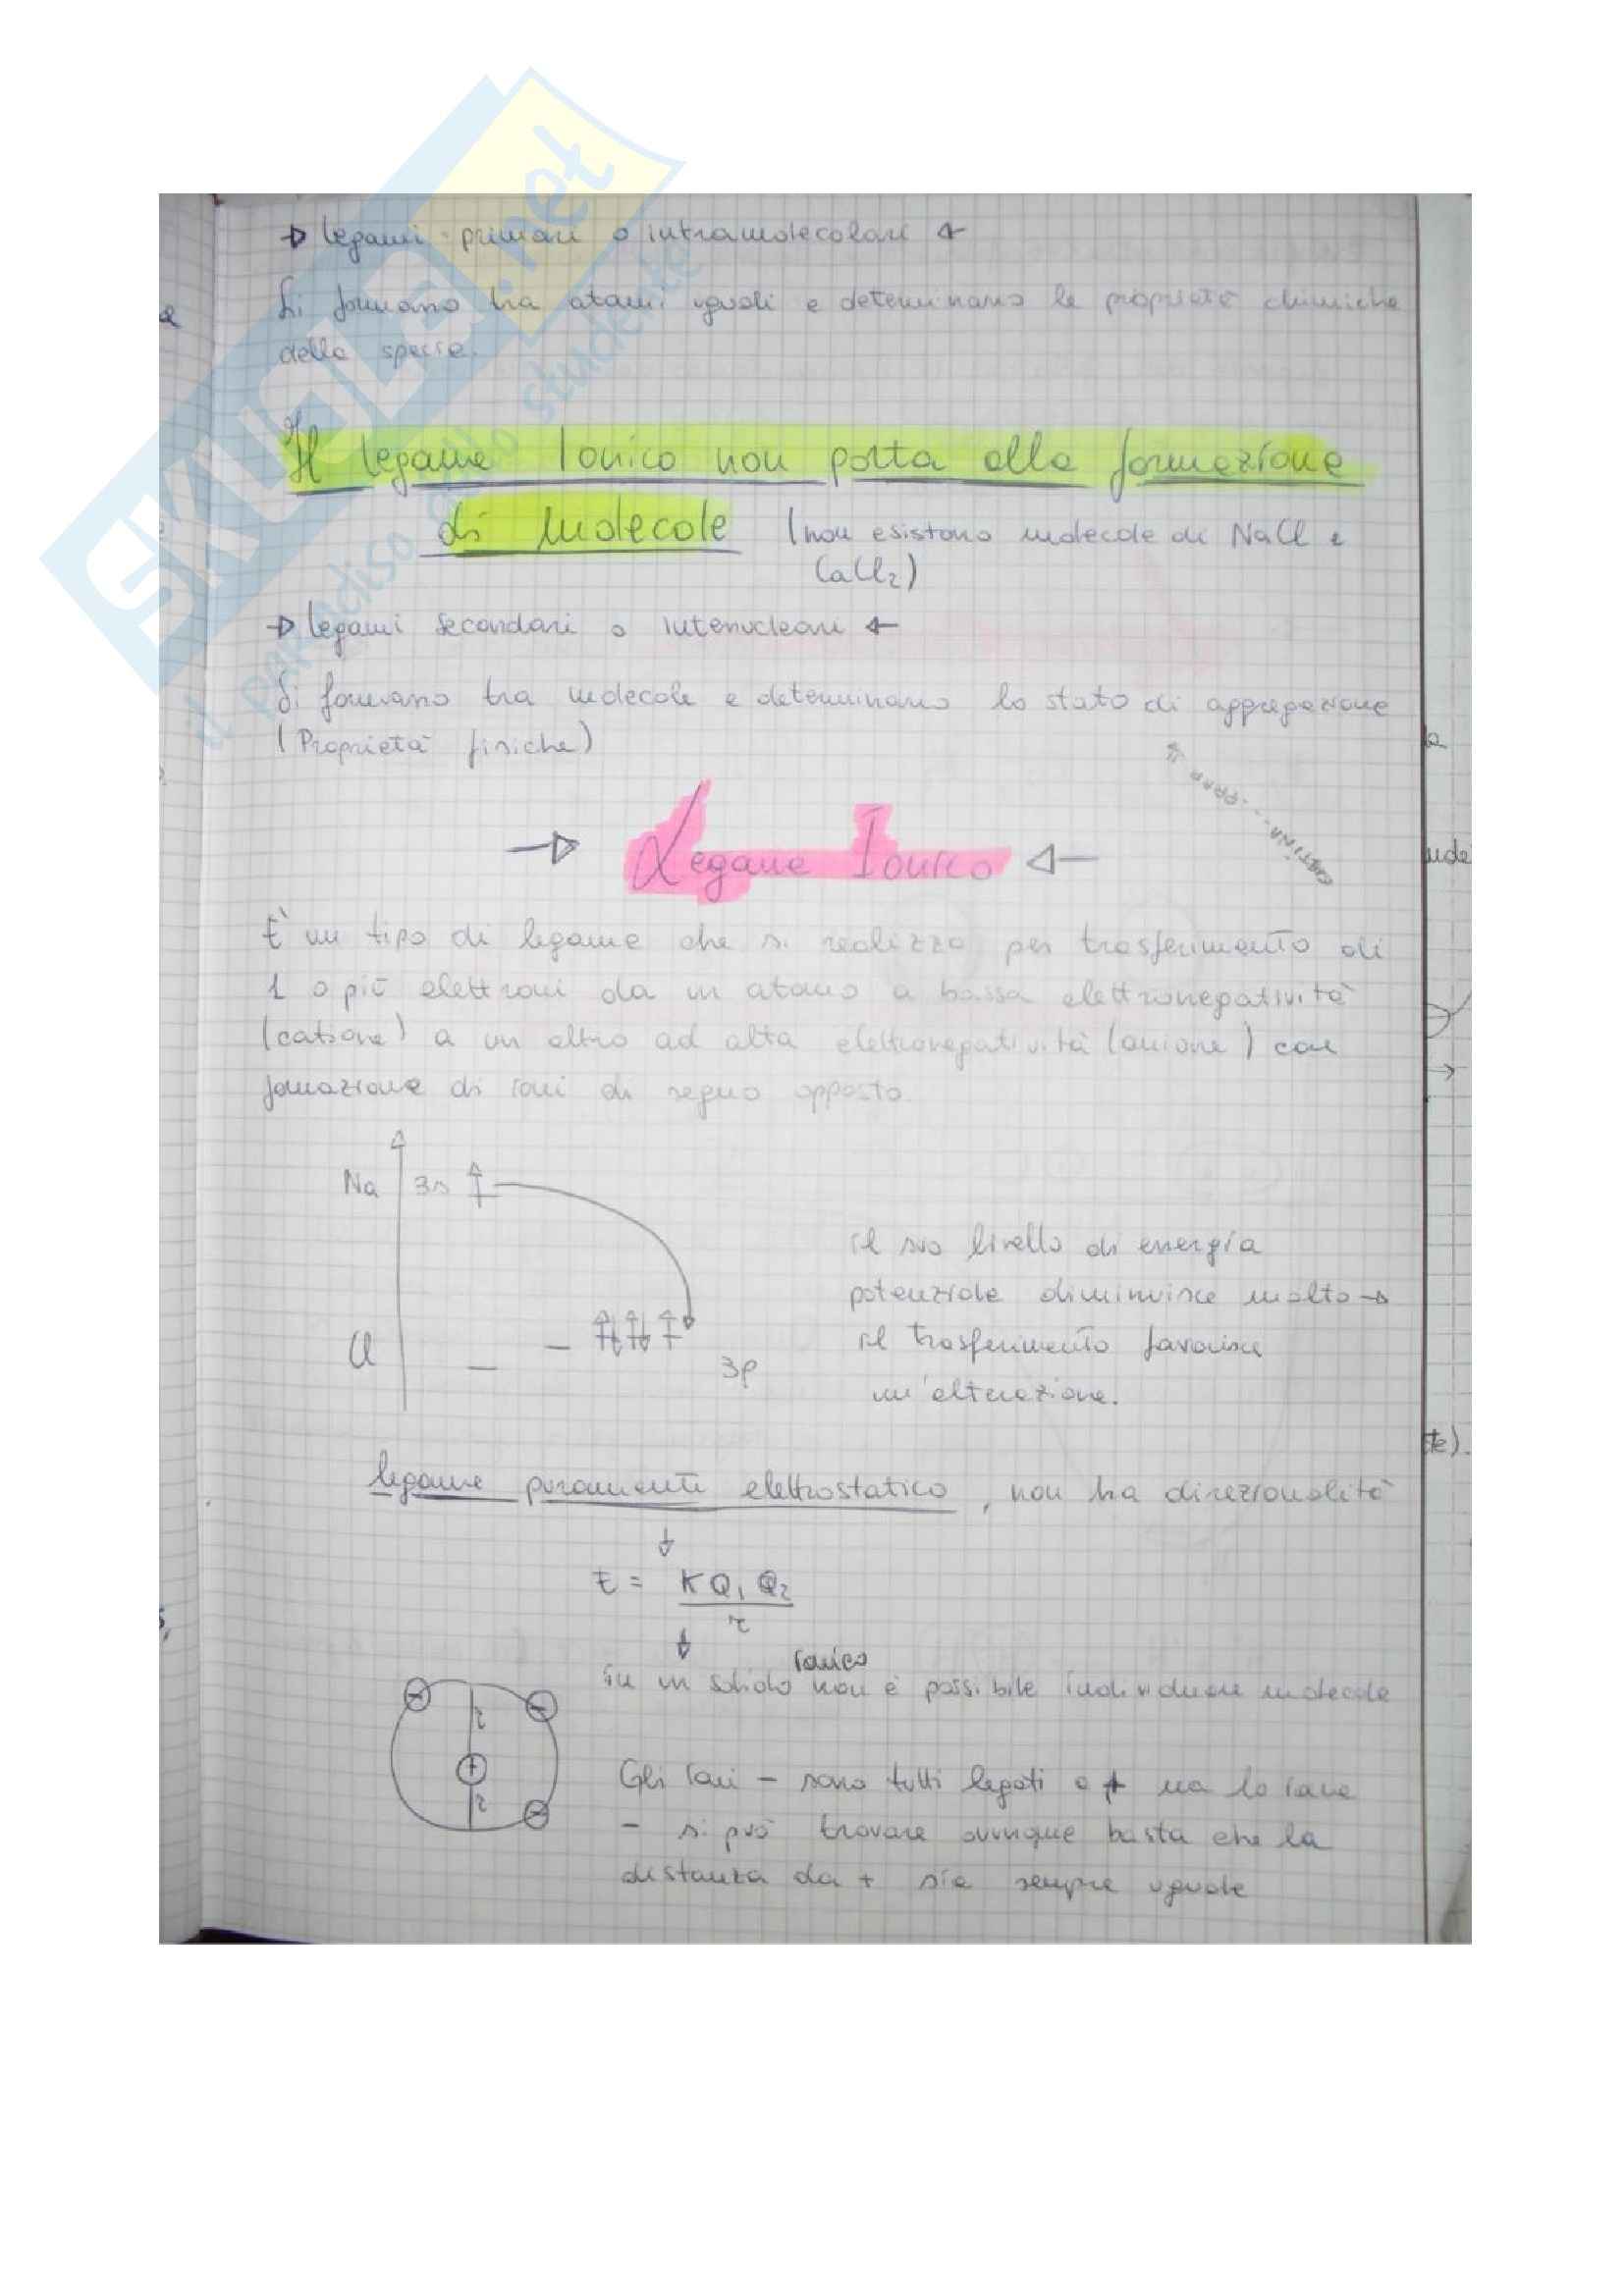 SKUOLA.net
il paradiso dello studente
→ legami primari o intramolecolari ←
Si formano tra atomi uguali e determinano le proprietà chimiche
della specie.
Il legame Ionico non porta alla formazione
di molecole (non esistono molecole di NaCl e
CaCl₂)
→ legami secondari o
Si formano tra molecole e determinano lo stato di aggregazione
(Proprietà fisiche)
CARTINA
→ Legame Ionico ←
È un tipo di legame che si realizza per trasferimento di
1 o più elettroni da un atomo a bassa elettronegatività
(catione) a un altro ad alta elettronegatività (anione) con
formazione di ioni di segno opposto
Na 3s
il suo livello di energia
potenziale diminuisce molto →
Cl 3p
il trasferimento favorisce
un'
legame puramente elettrostatico, non ha direzionalità
↓
E = K Q₁ Q₂
r
↓
ionico
in un solido non è possibile individuare molecole
− − r + r −
Gli ioni − sono tutti legati a + ma lo ione
− si può trovare ovunque basta che la
distanza da + sia sempre uguale
te).